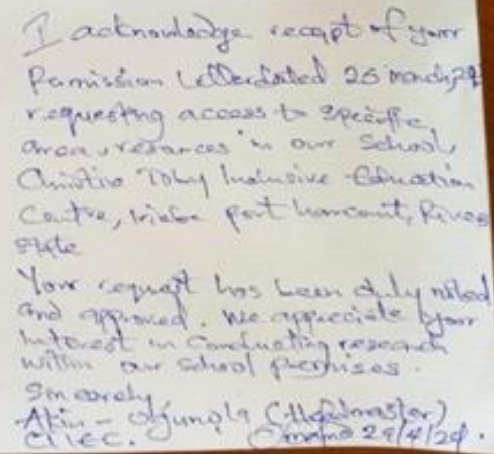 I acknowledge receipt of your
Permission Letter dated 26 March, 24
requesting access to specific
area, resources in our School,
Christie Toby Inclusive Education
Centre, port harcourt, Rivers
State
Your request has been duly noted
and approved. We appreciate your
interest in Conducting research
within our school premises.
Sincerely
Akin - Ogunola (Headmaster)
CTIEC. 29/4/24.